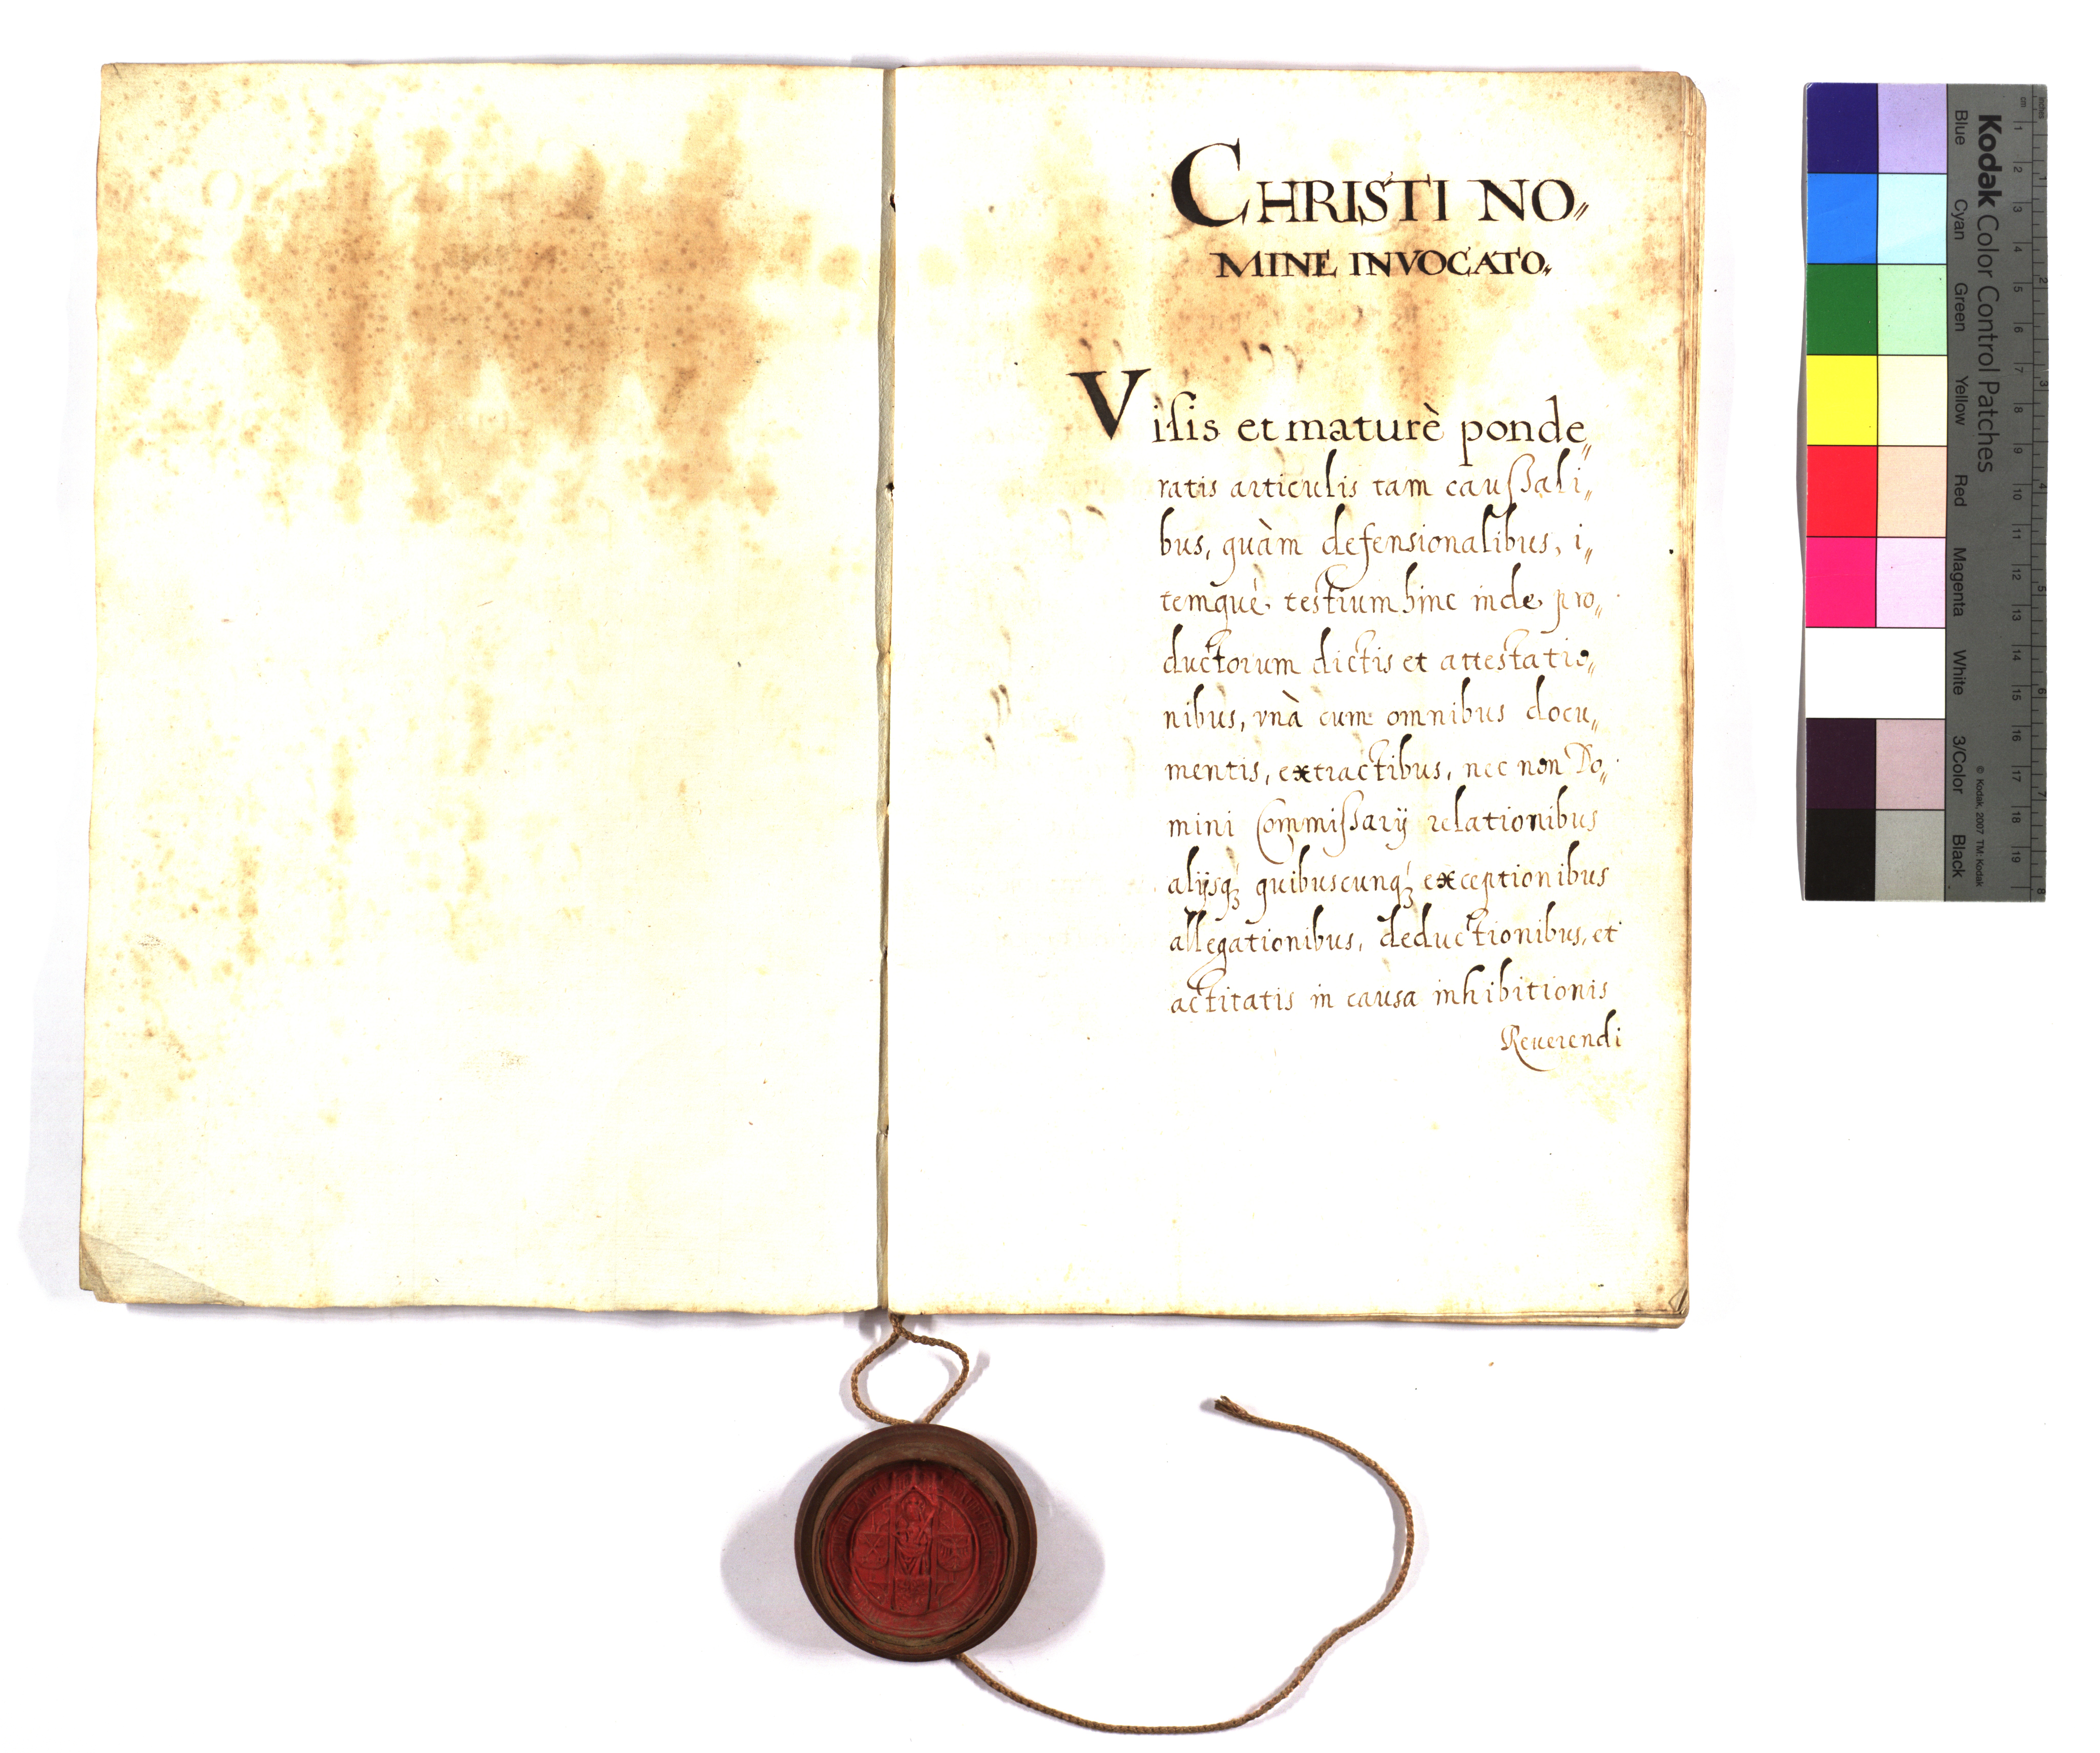 CHRISTI NO„
MINE INVOCATO„
Viſis et maturè ponde„
ratis articulis tam cauſsali„
bus, quàm defensionalibus, i„
temquè testium hinc inde pro„
ductorum dictis et attestatio„
nibus, vnà cum omnibus docu„
mentis, extractibus, nec non Do„
mini Commiſsarij relationibus
alijsq3 quibuscunq3 exceptionibus
allegationibus, deductionibus, et
actitatis in causa inhibitionis
Reuerendi
Kodak Color Control Patches
Blue Cyan Green Yellow Red Magenta White 3/Color Black
© Kodak, 2007 TM: Kodak
cm 1 2 3 4 5 6 7 8 9 10 11 12 13 14 15 16 17 18 19
inches 1 2 3 4 5 6 7 8